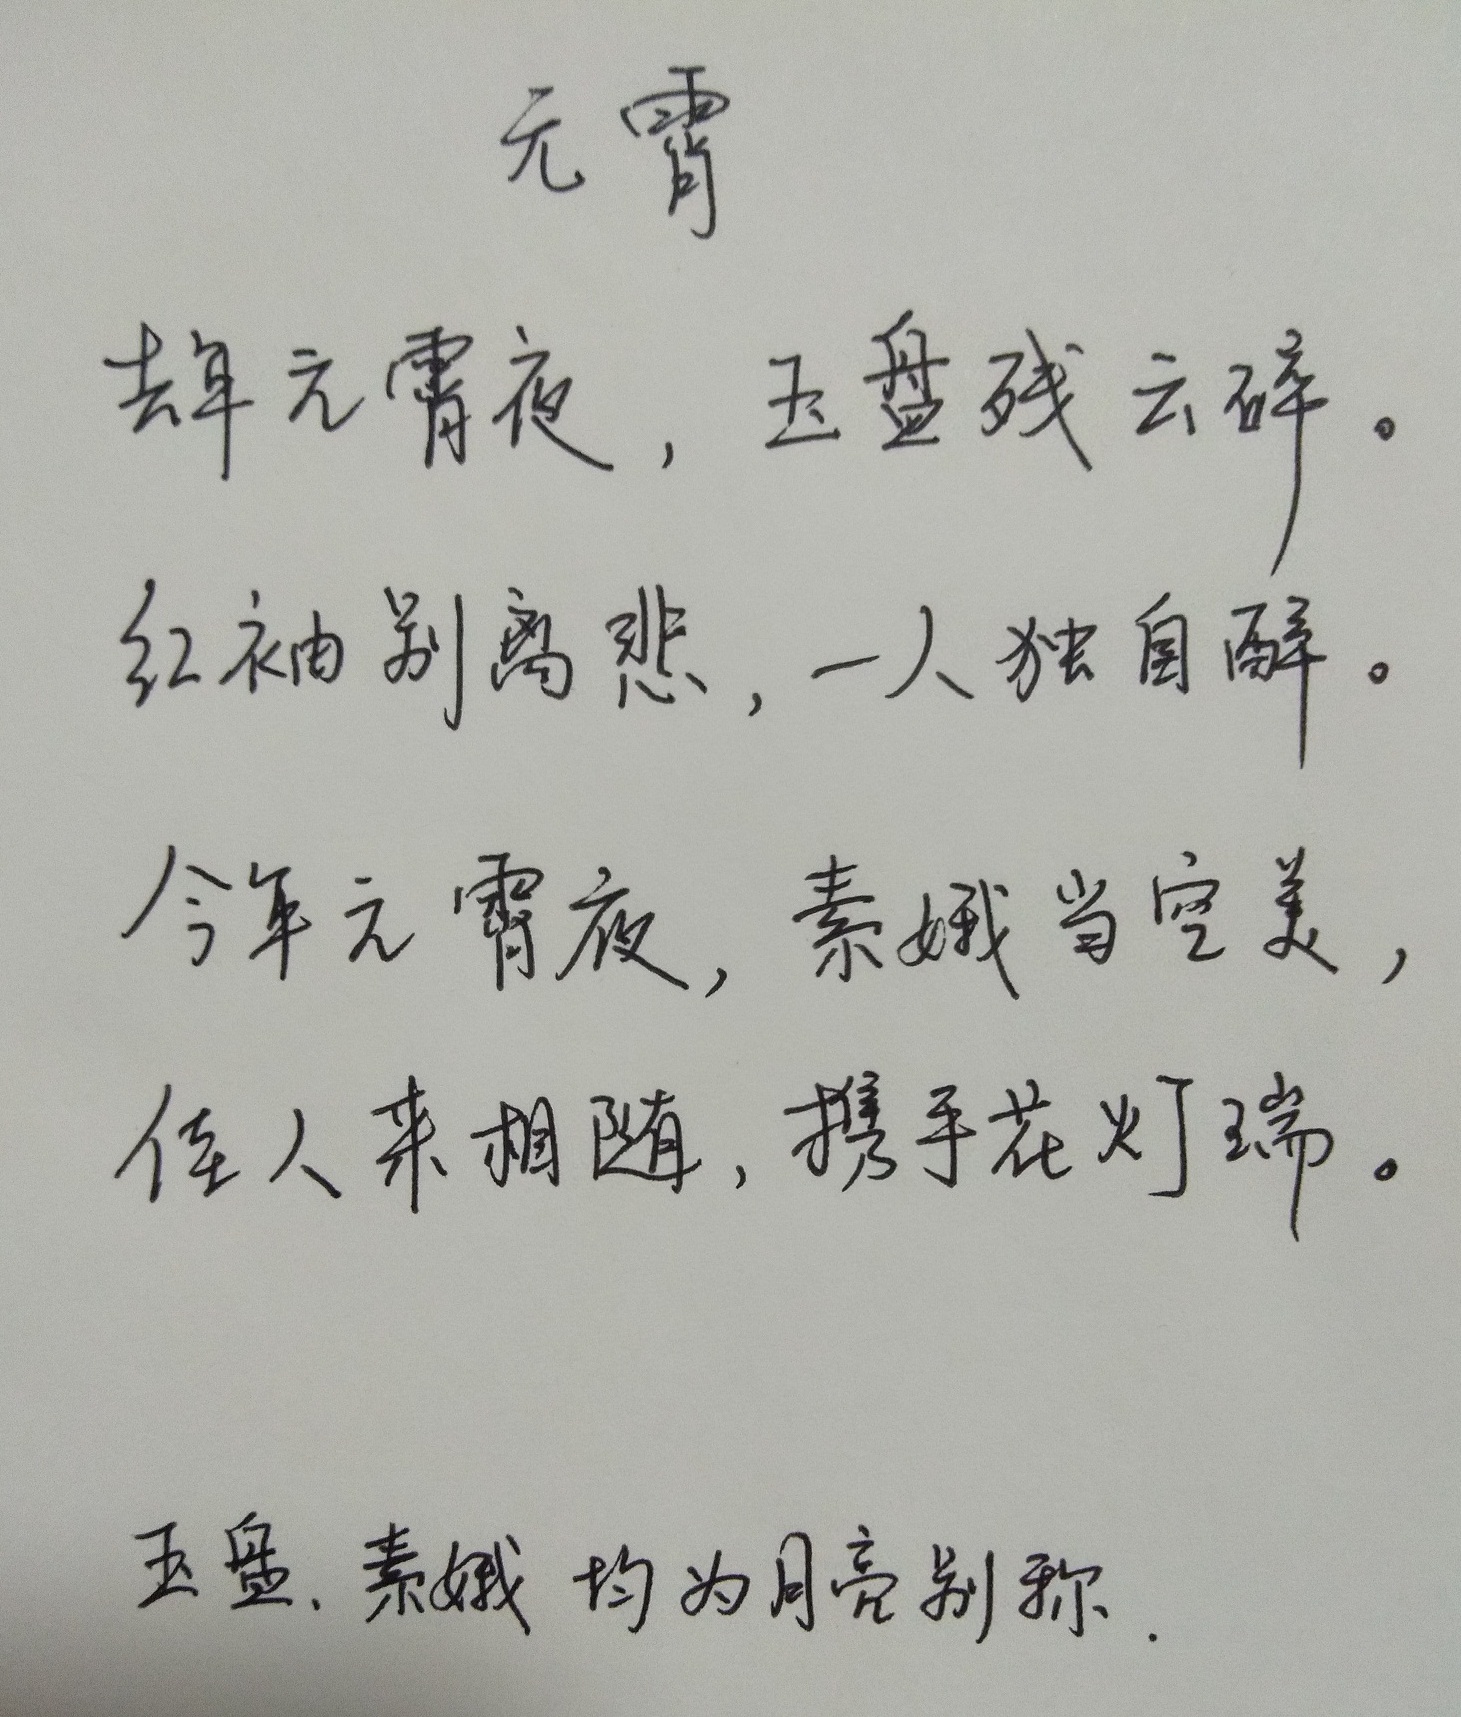 元霄
去年元霄夜，玉盘残云碎。
红袖别离悲，一人独自醉。
今年元霄夜，素娥当空美，
佳人来相随，携手花灯瑞。
玉盘、素娥均为月亮别称.